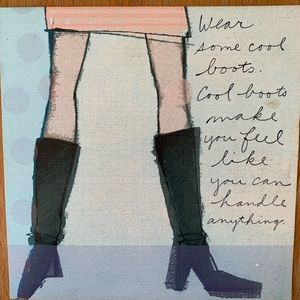 Wear
some cool
boots.
Cool boots
make
you feel
like
you can
handle
anything.